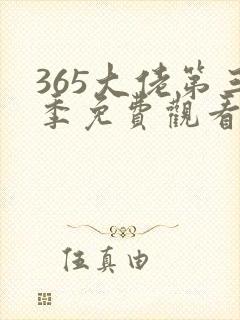 365大佬第三
季免費觀看
伍真由